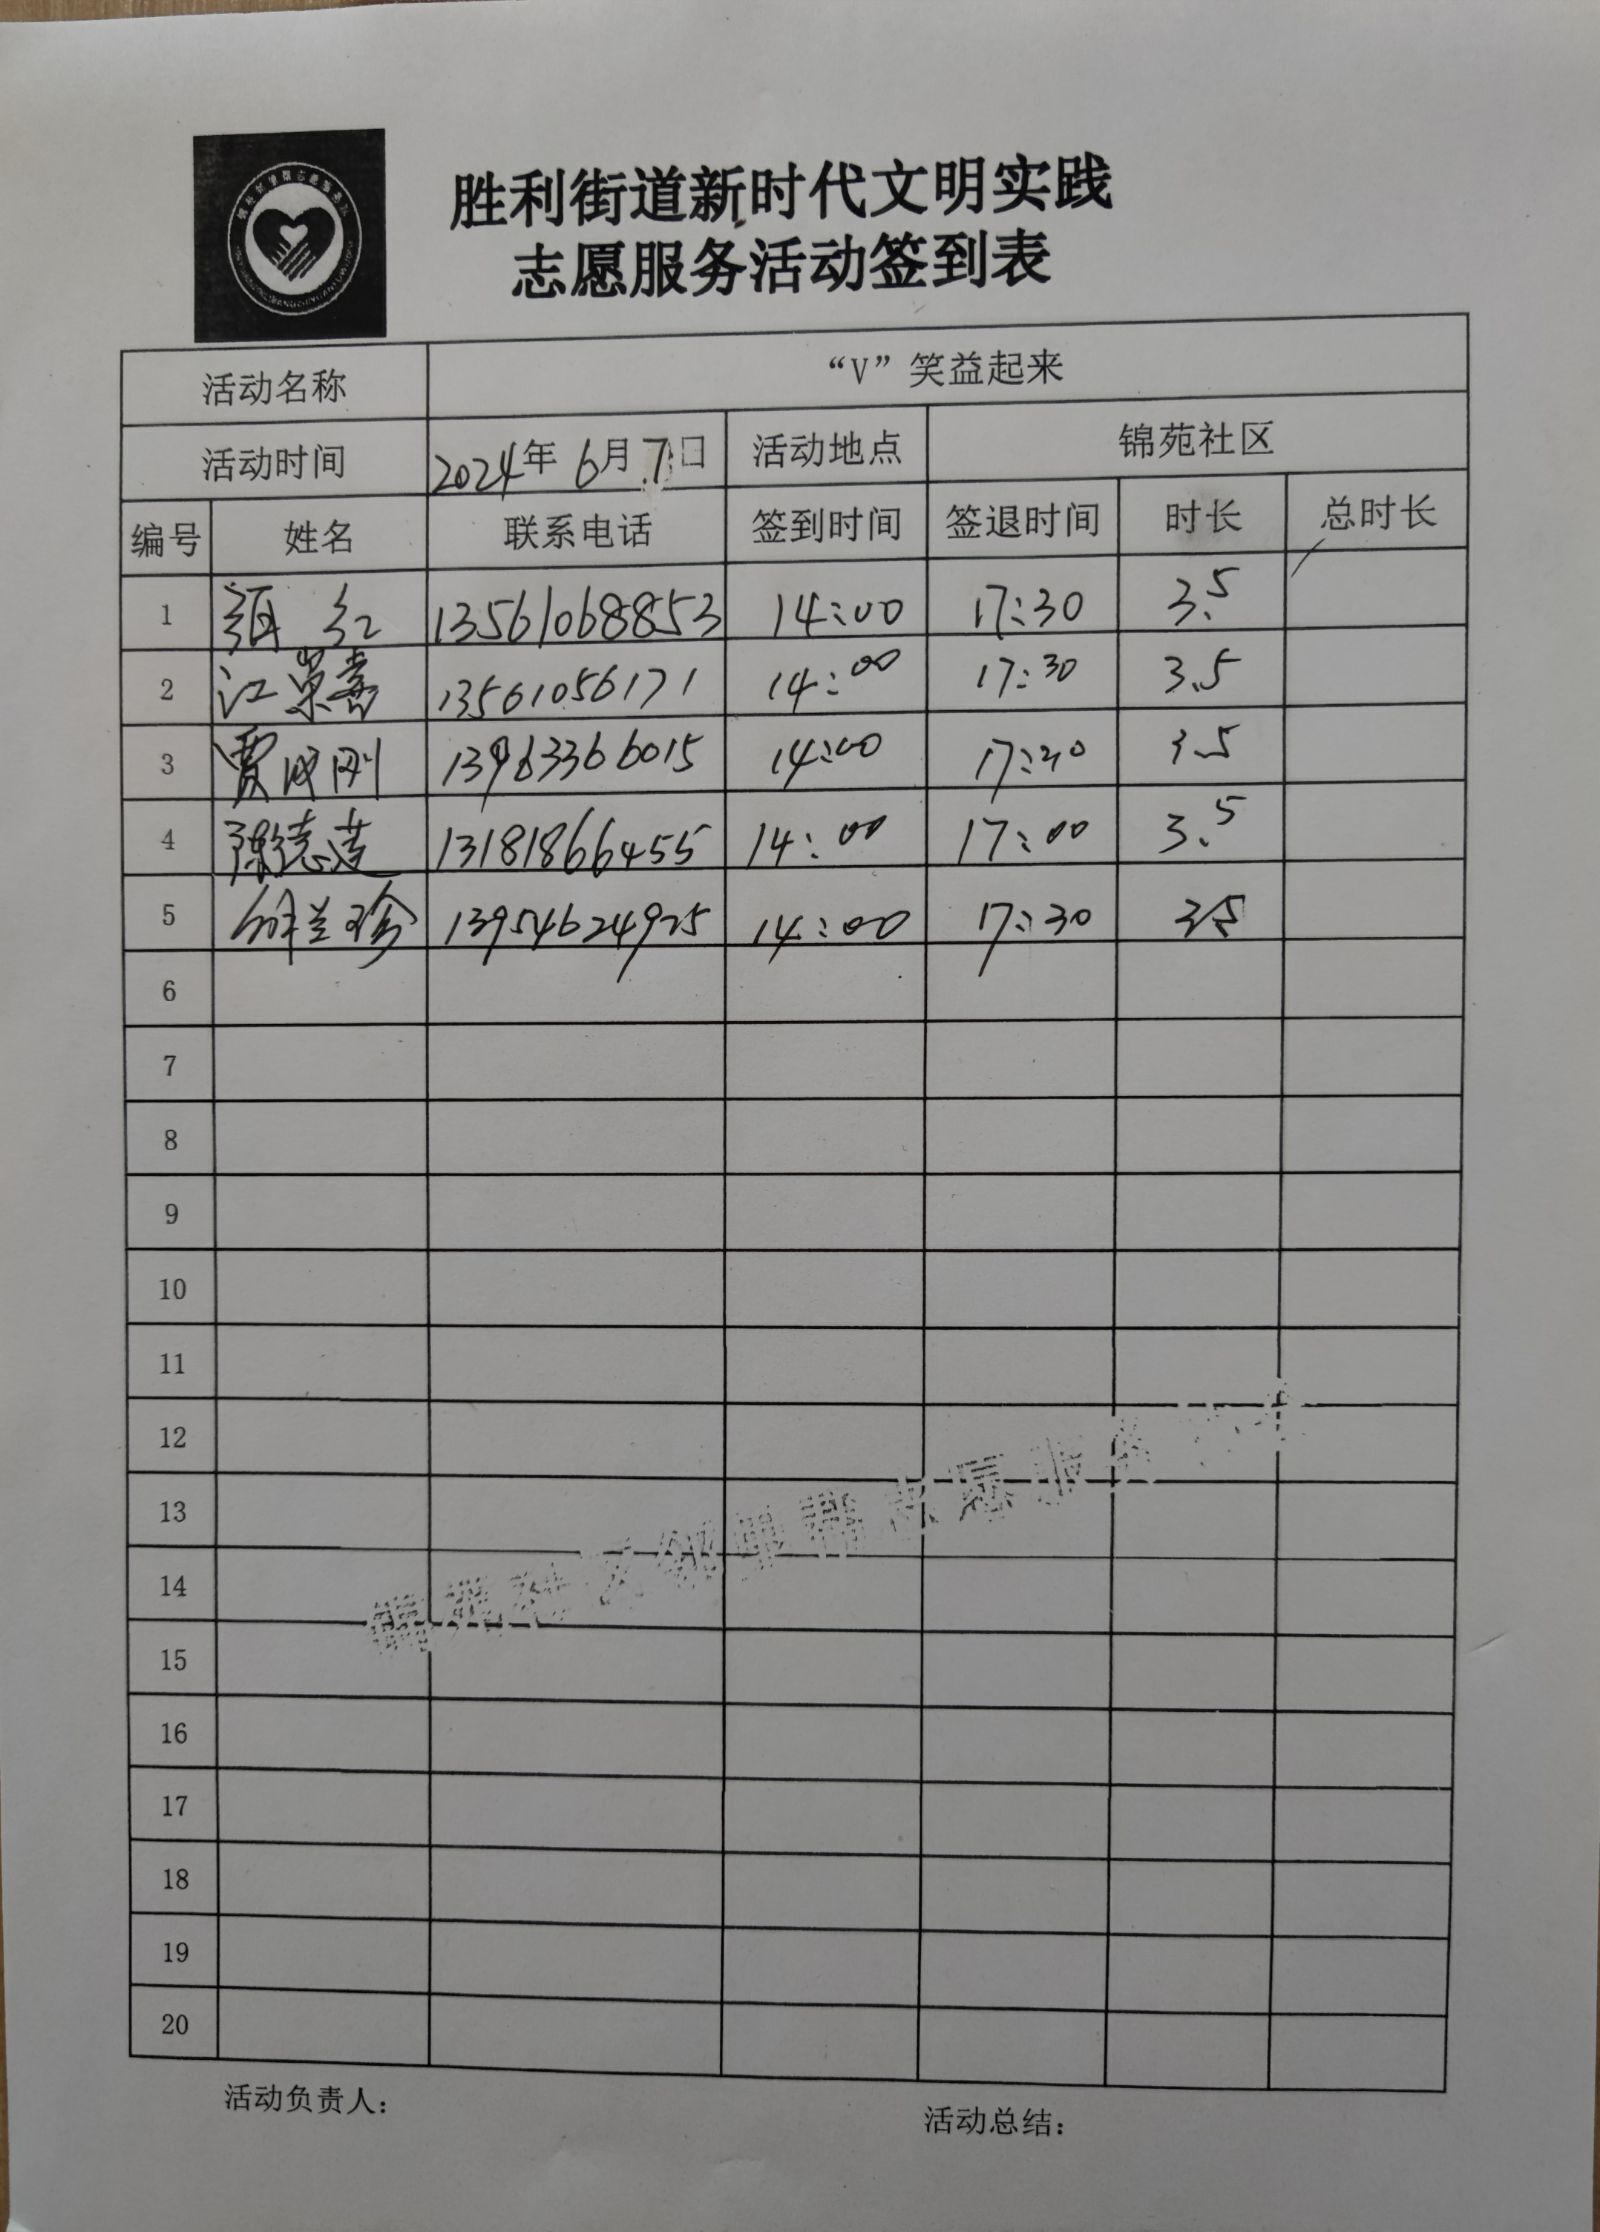 胜利街道新时代文明实践
志愿服务活动签到表
活动名称 “V”笑益起来
活动时间 2024年 6月 7日 活动地点 锦苑社区
编号 姓名 联系电话 签到时间 签退时间 时长 总时长
1 红 13561068853 14:00 17:30 3.5
2 江 13561056171 14:00 17:30 3.5
3 贾成刚 13963366015 14:00 17:30 3.5
4 陈德莲 13181866455 14:00 17:00 3.5
5 兰珍 13954624925 14:00 17:30 3.5
6
7
8
9
10
11
12
13
14
15
16
17
18
19
20
锦苑社区邻里帮志愿服务
活动负责人：
活动总结：